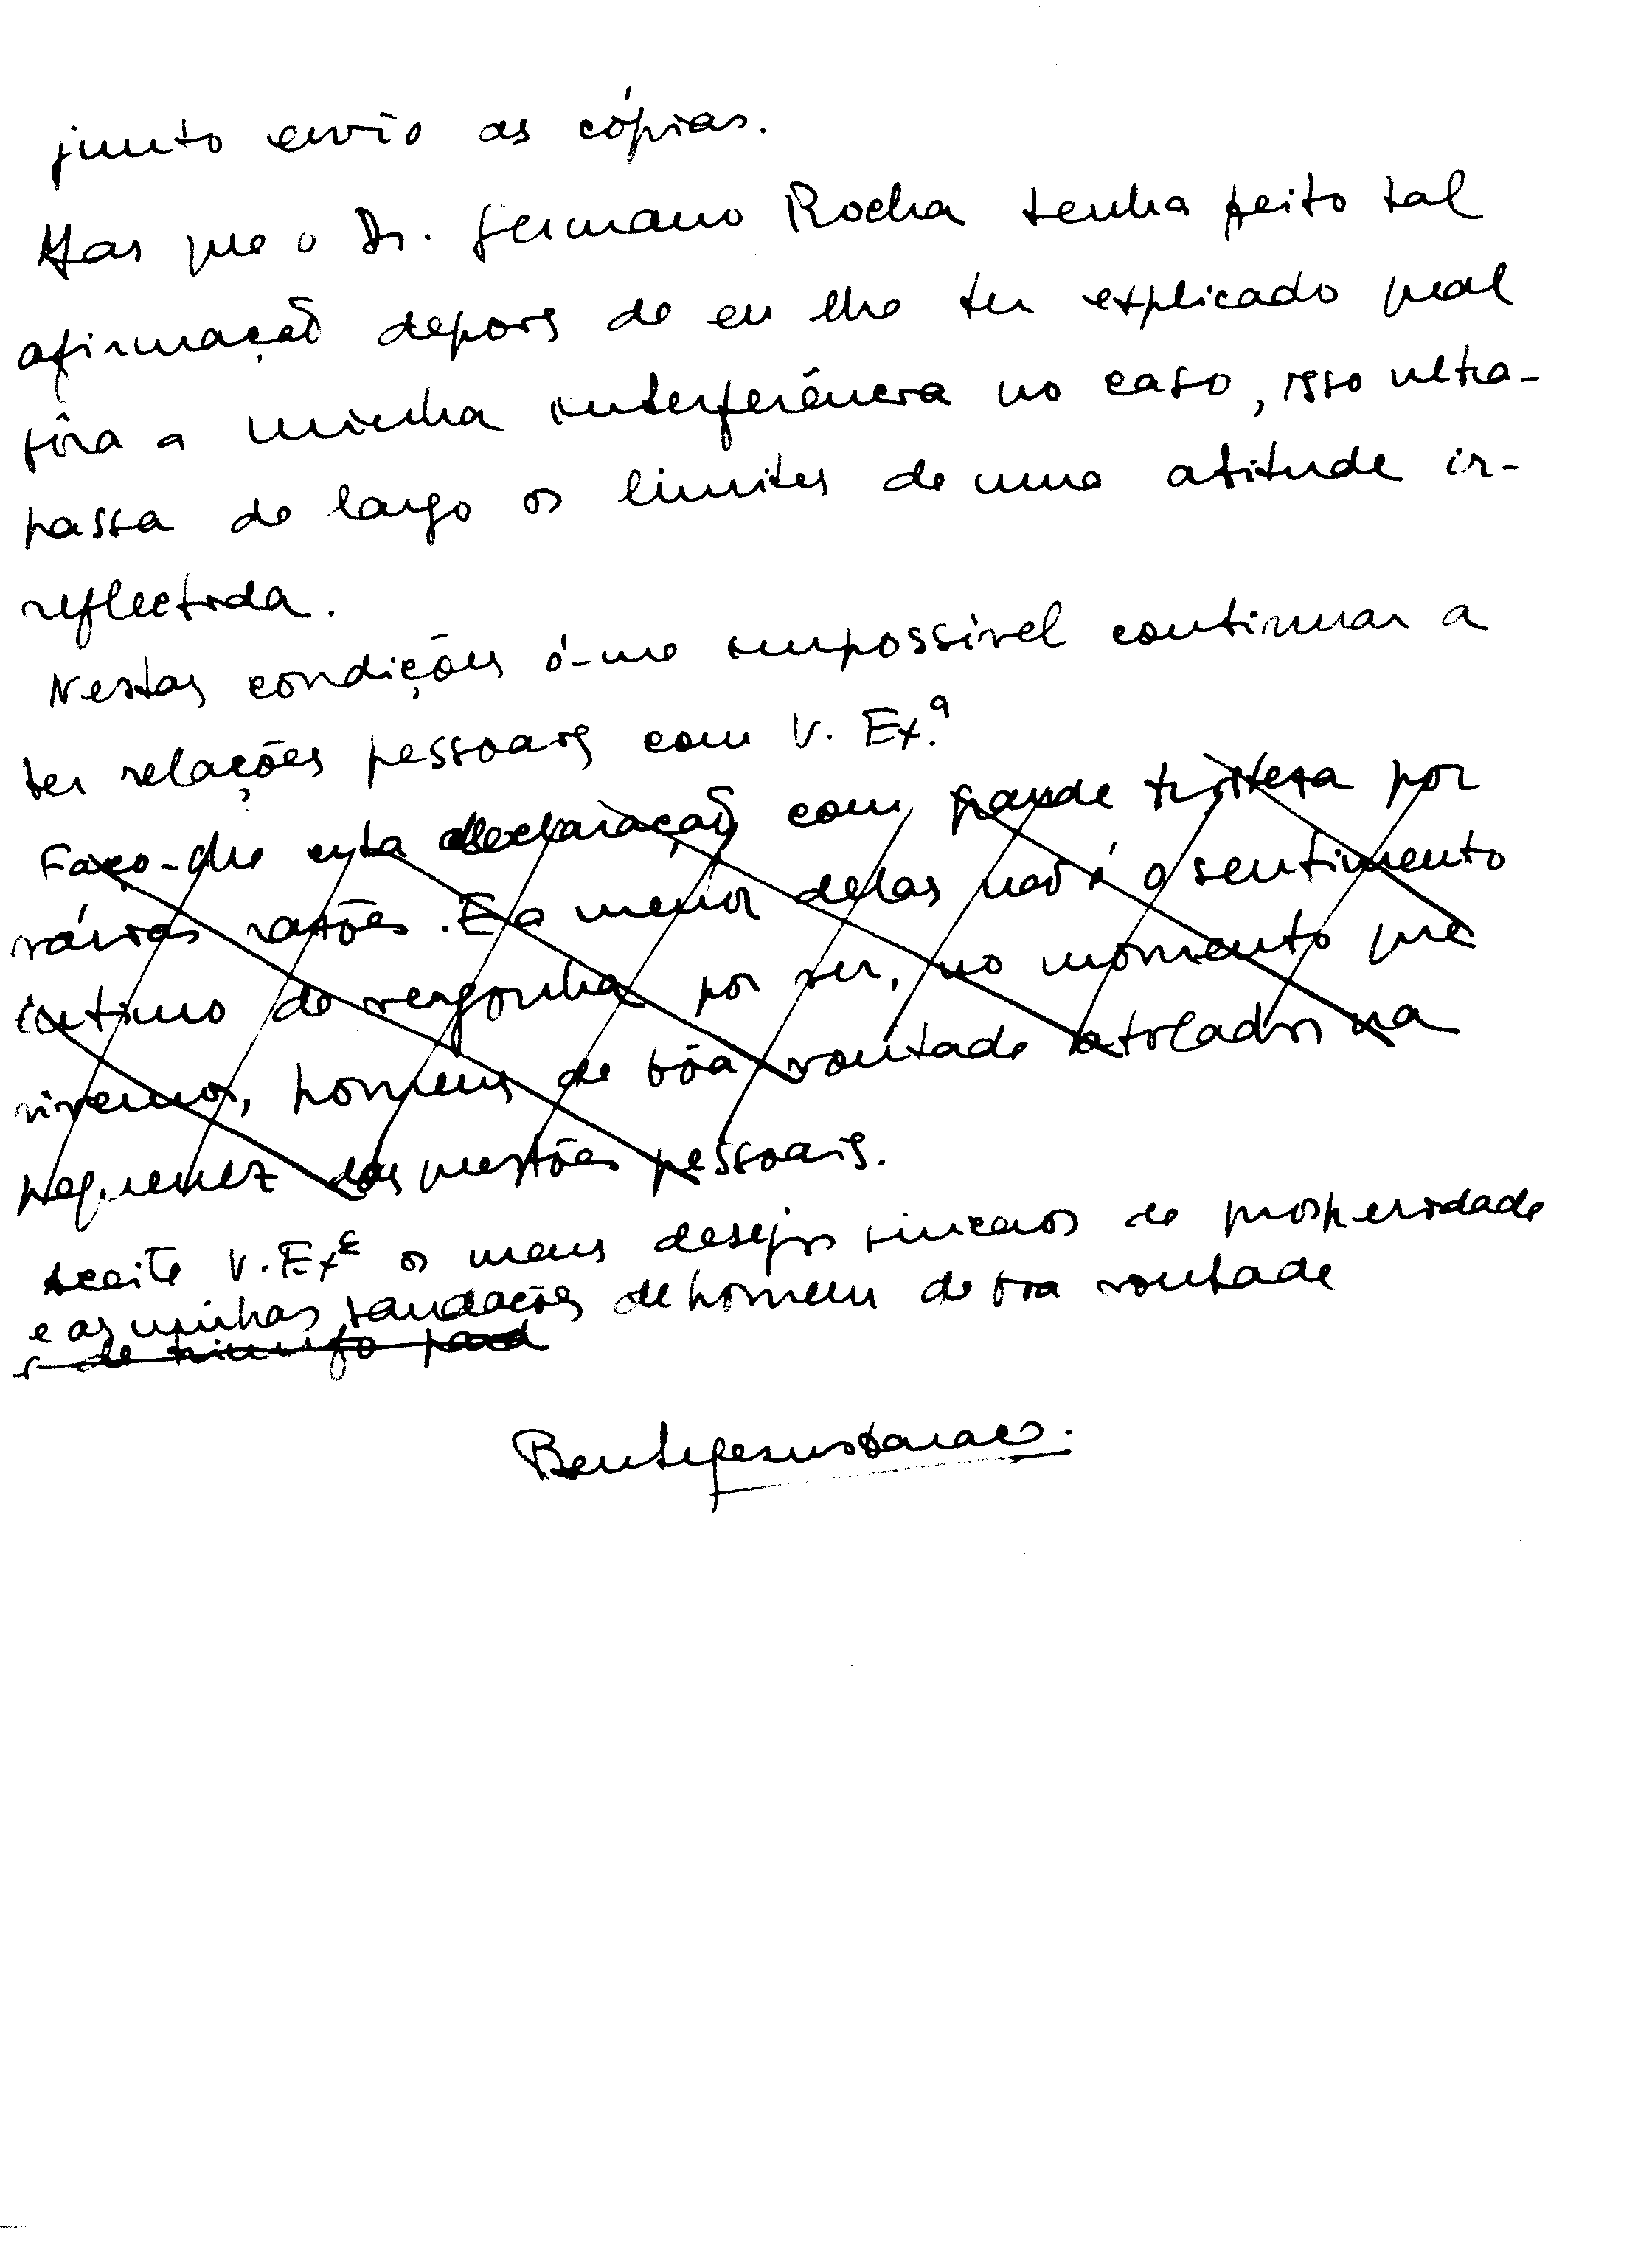 junto envio as cópias.
Mas que o Dr. Germano Rocha tenha feito tal
afirmação depois de eu lhe ter explicado qual
fôra a minha interferência no caso, isso ultra-
passa de largo os limites de uma atitude ir-
reflectida.
Nestas condições é-me impossível continuar a
ter relações pessoais com V. Ex.ª
Faço-lhe esta declaração com grande tristeza por
várias razões. E a menor delas não é o sentimento
íntimo de vergonha por ser, no momento que
vivemos, homens de bôa vontade atolados na
pequenez das questões pessoais.
Aceite V. Exª os meus desejos sinceros de prosperidade
e as minhas saudações de homem de boa vontade
de triunfo
Bento Jesus Caraça.